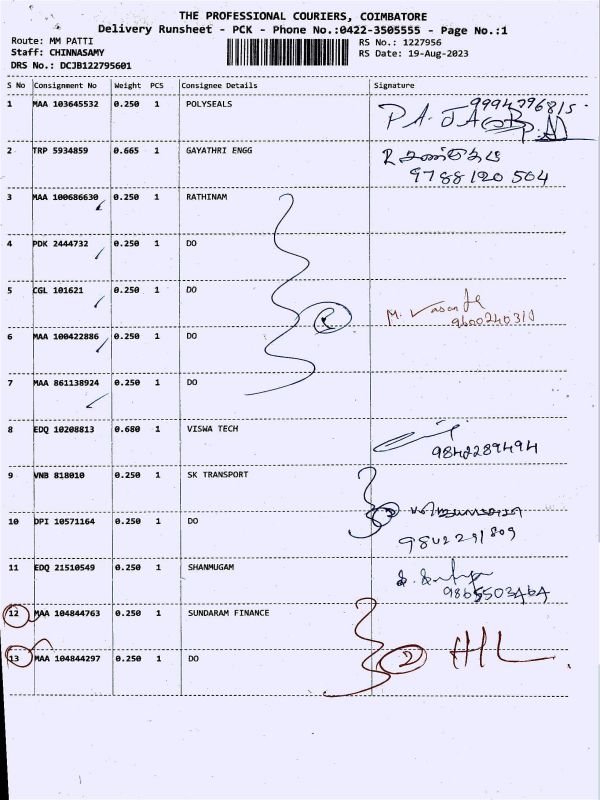 THE PROFESSIONAL COURIERS, COIMBATORE
Delivery Runsheet - PCK - Phone No.:0422-3505555 - Page No.:1
Route: MM PATTI RS No.: 1227956
Staff: CHINNASAMY RS Date: 19-Aug-2023
DRS No.: DCJB122795601
S No Consignment No Weight PCS Consignee Details Signature
1 MAA 103645532 0.250 1 POLYSEALS
2 TRP 5934859 0.665 1 GAYATHRI ENGG
9788120504
3 MAA 100686630 0.250 1 RATHINAM
4 PDK 2444732 0.250 1 DO
5 CGL 101621 0.250 1 DO M. Vasantha
9600240310
6 MAA 100422886 0.250 1 DO
7 MAA 861138924 0.250 1 DO
8 EDQ 10208813 0.680 1 VISWA TECH
9842289494
9 VNB 818010 0.250 1 SK TRANSPORT
10 DPI 10571164 0.250 1 DO
9842291809
11 EDQ 21510549 0.250 1 SHANMUGAM
9865503464
12 MAA 104844763 0.250 1 SUNDARAM FINANCE
13 MAA 104844297 0.250 1 DO 2